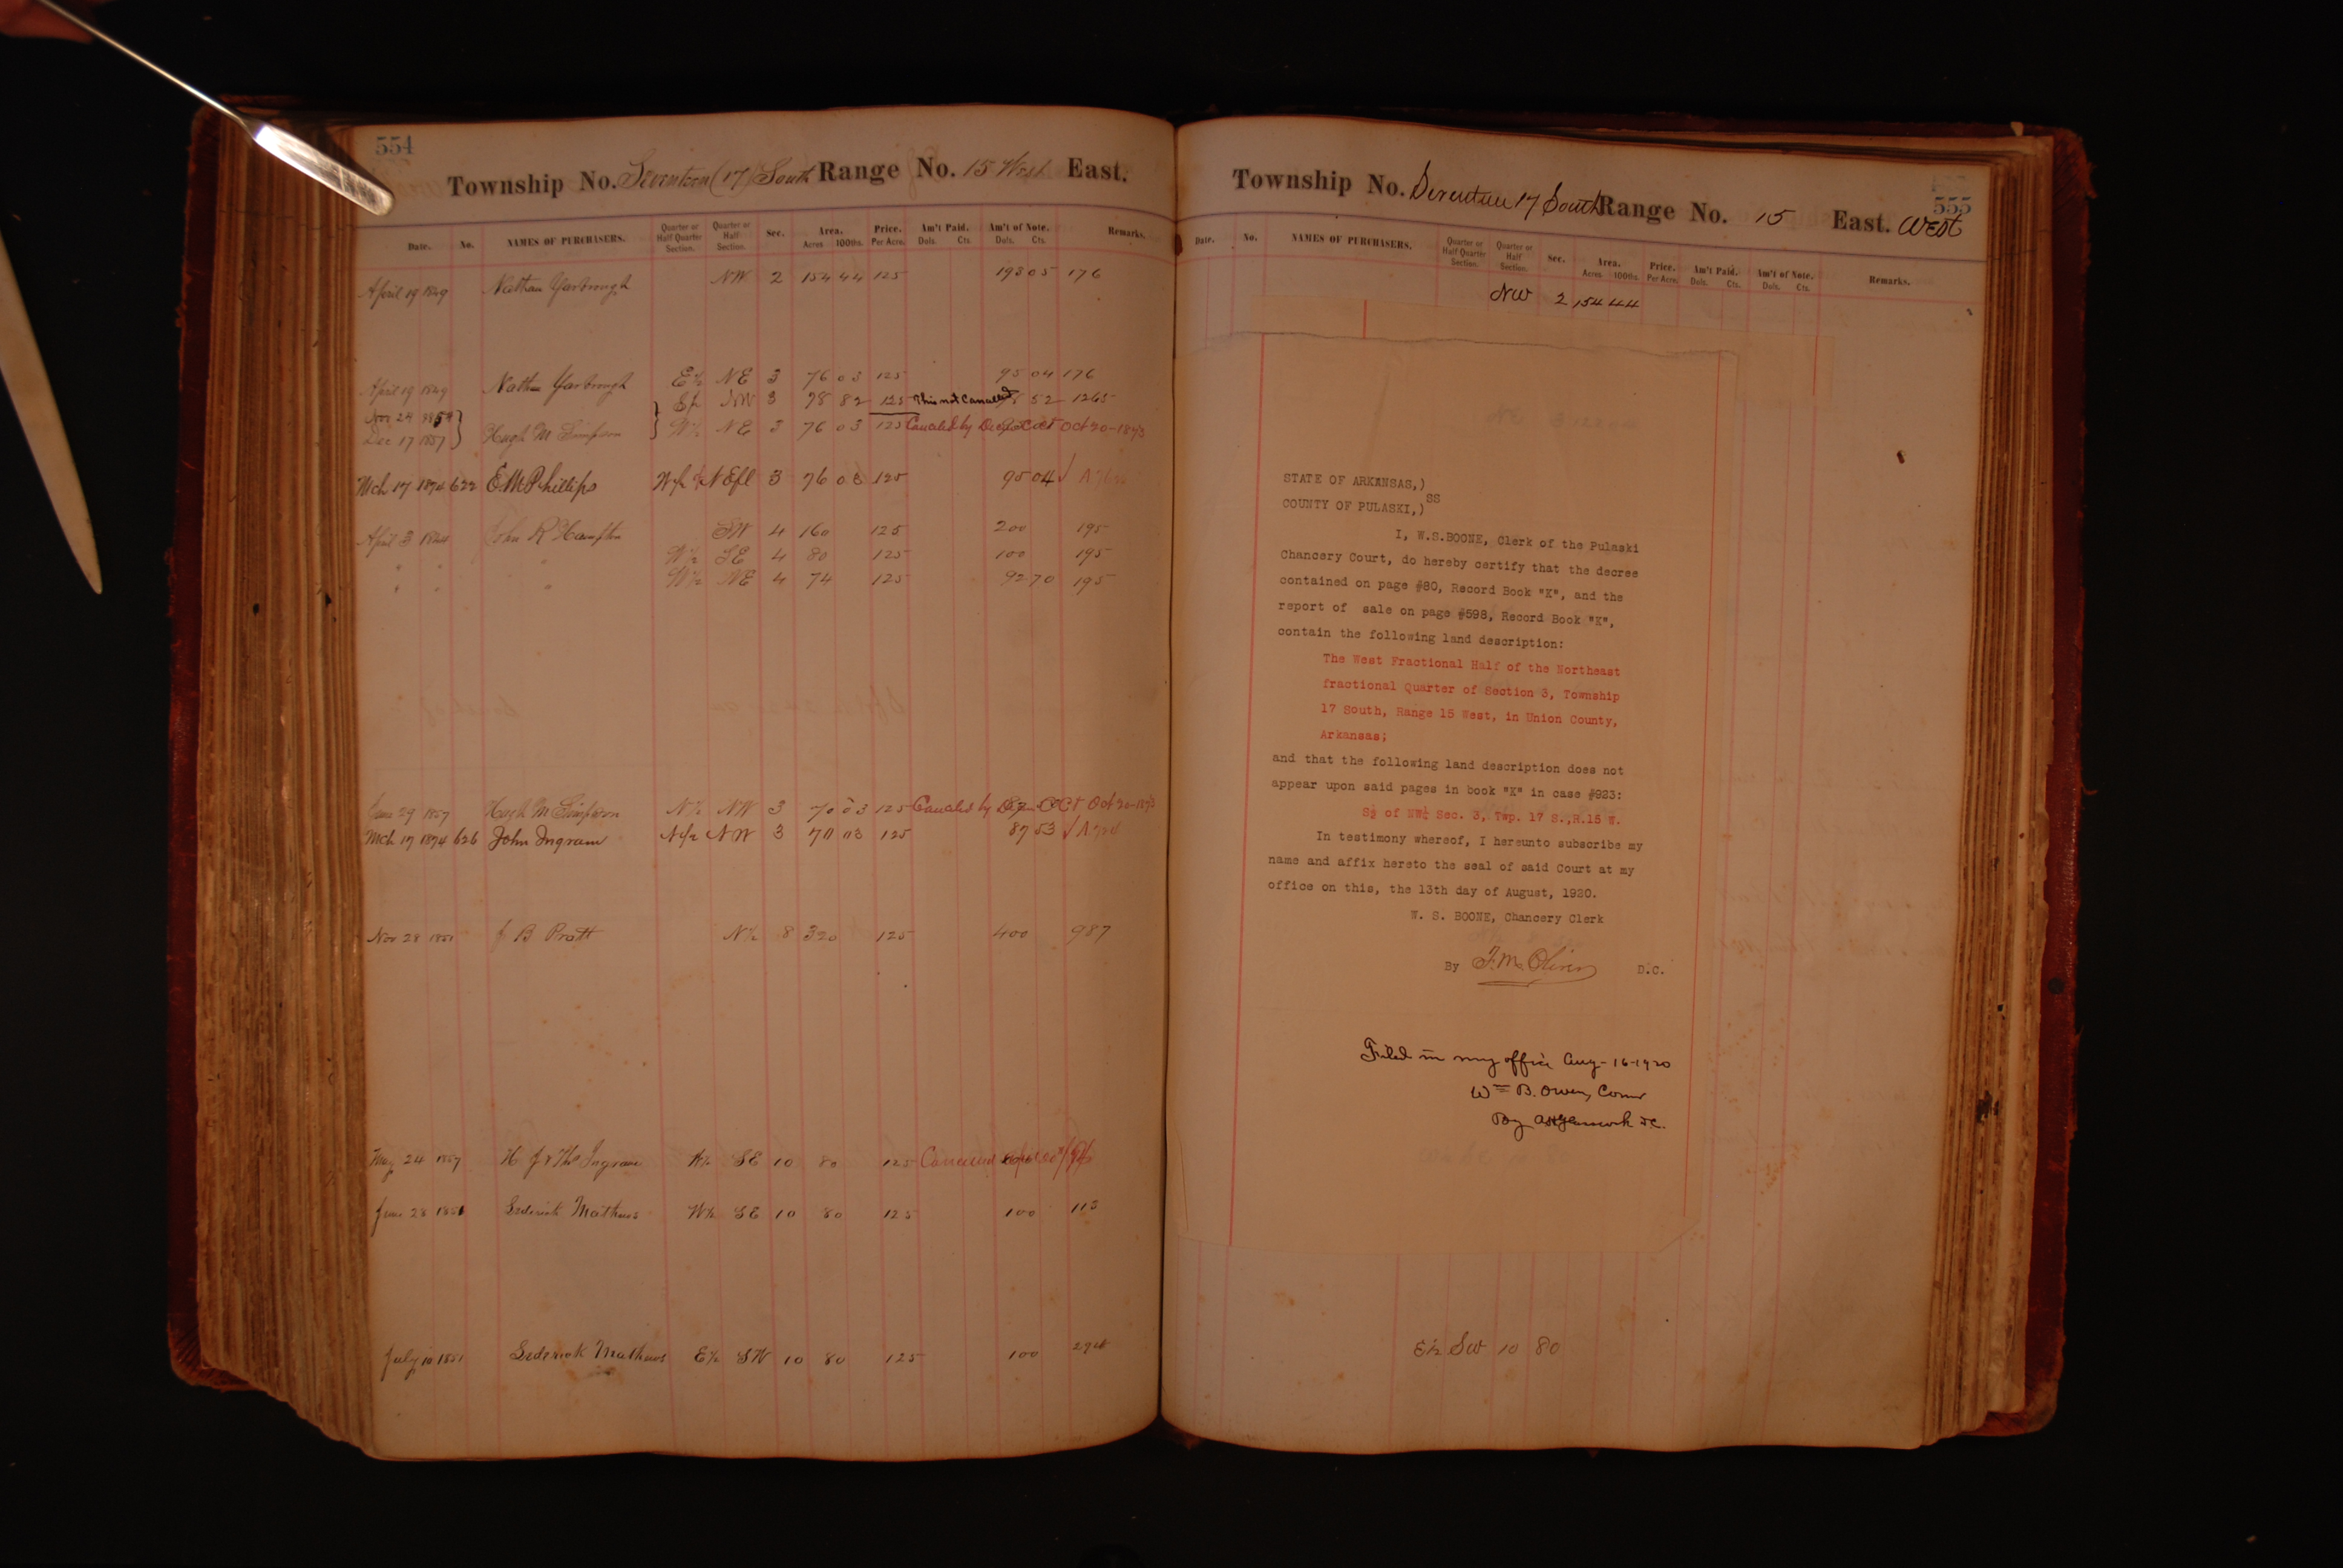 554
Township No. Seventeen (17) South Range No. 15 West East.
Date. No. NAMES OF PURCHASERS. Quarter or Half Quarter Section. Quarter or Half Section. Sec. Area. Acres 100ths. Price. Per Acre. Am't Paid. Dols. Cts. Am't of Note. Dols. Cts. Remarks.
April 19 1849 Nathan Yarbrough NW 2 154 44 125 193 05 176
April 19 1849 Nathan Yarbrough E½ NE 3 76 03 125 95 04 176
Nov 24 S½ NW 3 78 82 125 This not Cancelled 52 1265
Dec 17 1857 Hugh M Simpson W½ NE 3 76 03 125 Canceled by Oct 20-1873
Mch 17 1874 622 E.M Phillips W½ NE 3 76 03 125 95 04 √
April 3 John R Hampton SW 4 160 125 200 195
" " " W½ SE 4 80 125 100 195
" " " W½ NE 4 74 125 92 70 195
June 29 1857 Hugh M Simpson N½ NW 3 70 03 125 Canceled by Oct 20-1873
Mch 17 1874 626 John Ingram N½ NW 3 70 03 125 87 53 √
Nov 28 1851 J B Pratt N½ 8 320 125 400 987
May 24 1857 H J & Ingram SE 10 80 125 Canceled
June 28 1851 Mathews W½ SE 10 80 125 100 113
July 10 1851 Mathews E½ SW 10 80 125 100
555
Township No. Seventeen 17 South Range No. 15 East. West
Date. No. NAMES OF PURCHASERS. Quarter or Half Quarter Section. Quarter or Half Section. Sec. Area. Acres 100ths. Price. Per Acre. Am't Paid. Dols. Cts. Am't of Note. Dols. Cts. Remarks.
NW 2 154 44
STATE OF ARKANSAS,)
SS
COUNTY OF PULASKI,)
I, W.S.BOONE, Clerk of the Pulaski
Chancery Court, do hereby certify that the decree
contained on page #80, Record Book "K", and the
report of sale on page #598, Record Book "K",
contain the following land description:
The West Fractional Half of the Northeast
fractional Quarter of Section 3, Township
17 South, Range 15 West, in Union County,
Arkansas;
and that the following land description does not
appear upon said pages in book "K" in case #923:
S½ of NW¼ Sec. 3, Twp. 17 S.,R.15 W.
In testimony whereof, I hereunto subscribe my
name and affix hereto the seal of said Court at my
office on this, the 13th day of August, 1920.
W. S. BOONE, Chancery Clerk
By F.M. Oliver D.C.
Filed in my office Aug-16-1920
Wm B. Owen, Comr
By D.C.
E½ SW 10 80